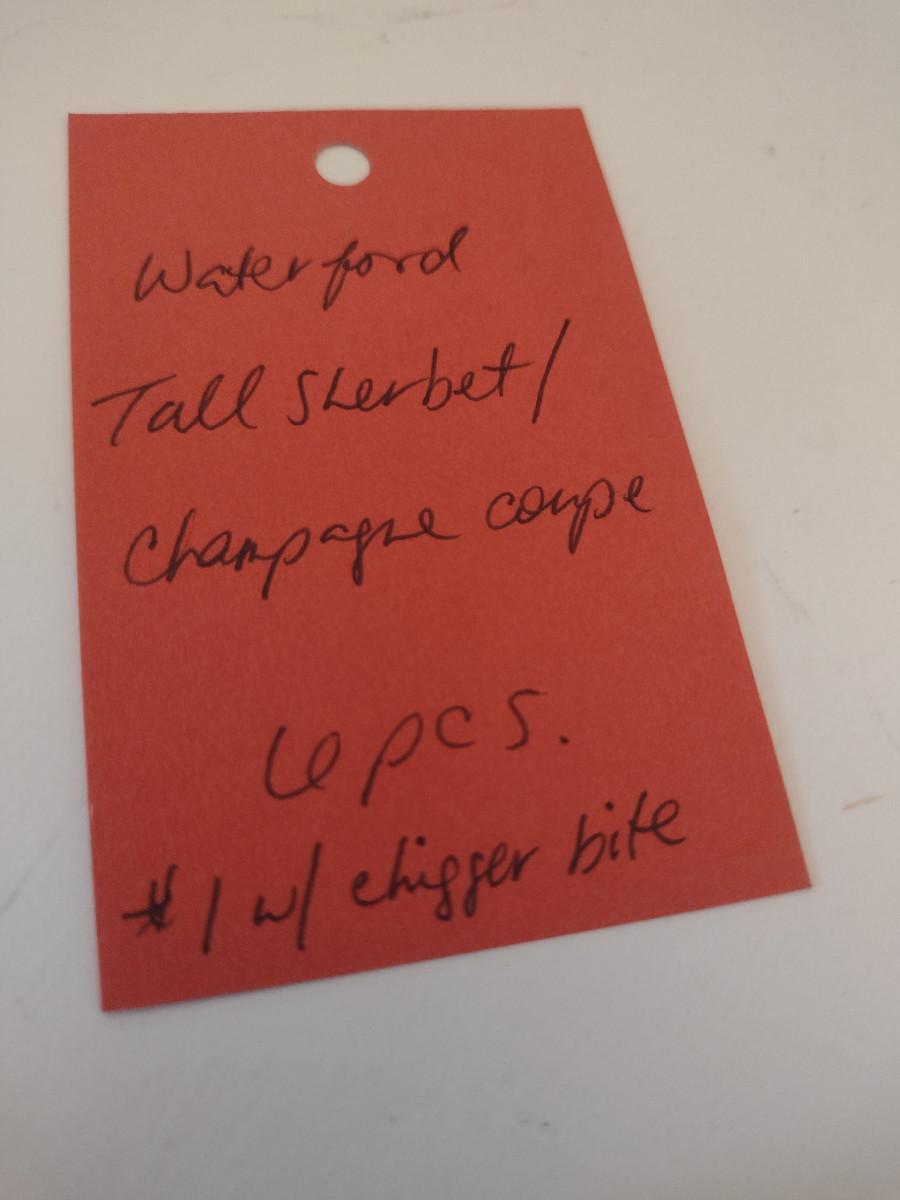 Waterford
Tall Sherbet/
Champagne coupe
6 pcs.
#1 w/ chigger bite